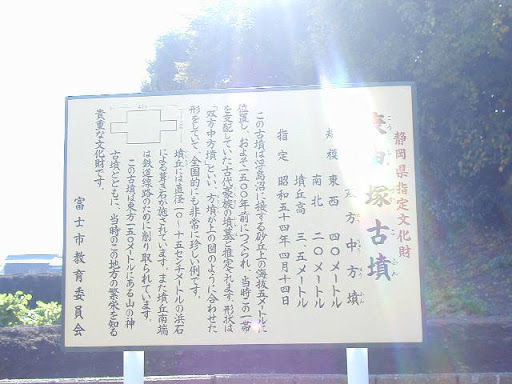 静岡県指定文化財
庚申塚古墳
双方中方墳
規模 東西 四〇メートル
南北 二〇メートル
墳丘高 三・五メートル
指定 昭和五十四年四月十四日
この古墳は浮島沼に接する砂丘上の海抜五メートルに
位置し、およそ一五〇〇年前につくられ、当時この一帯
を支配していた古代豪族の墳墓と推定されます。形状は
「双方中方墳」といい、方墳が上の図のように合わせた
形をしていて、全国的にも非常に珍しい例です。
墳丘には直径一〇〜十五センチメートルの浜石
による葺き石が施されています。また墳丘南端
は鉄道線路のために削り取られています。
この古墳は東方一五〇メートルにある山の神
古墳とともに、当時のこの地方の繁栄を知る
貴重な文化財です。
富士市教育委員会